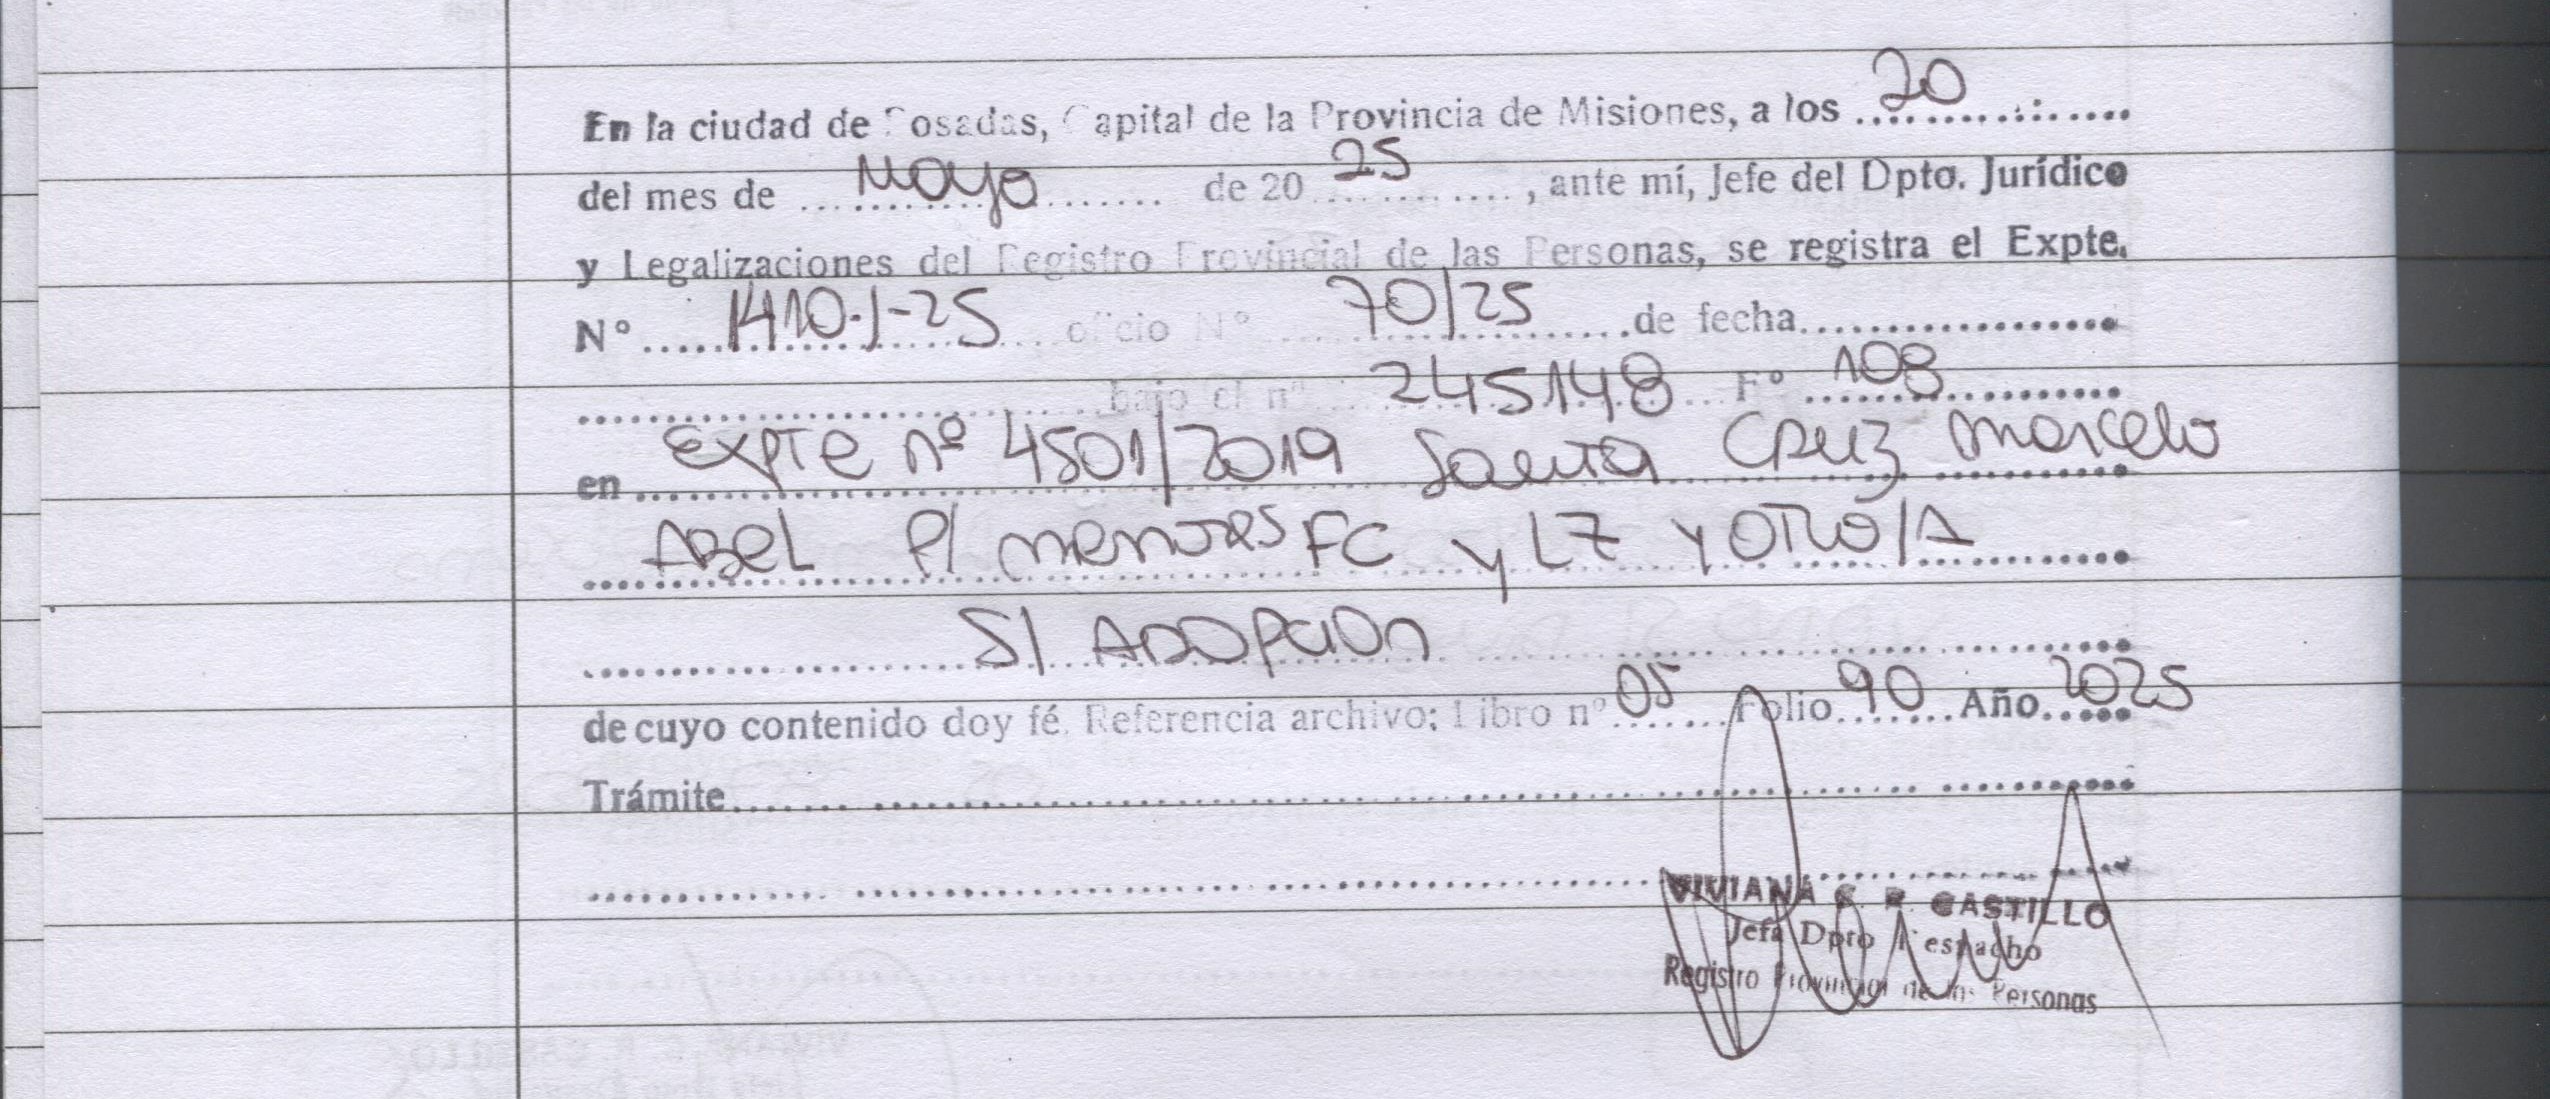 En la ciudad de Posadas, Capital de la Provincia de Misiones, a los 20
del mes de Mayo de 20 25, ante mí, Jefe del Dpto. Jurídico
y Legalizaciones del Registro Provincial de las Personas, se registra el Expte.
Nº 1410-J-25 oficio Nº 70/25 de fecha
bajo el nº 245148 Fº 108
en Expte nº 4501/2019 Santa Cruz Marcelo
Abel P/ menores FC y LZ y OTRO/A
S/ ADOPCION
de cuyo contenido doy fé. Referencia archivo: Libro nº 05 Folio 90 Año 2025
Trámite
VIVIANA C. R. CASTILLO
Jefa Dpto Despacho
Registro Provincial de las Personas